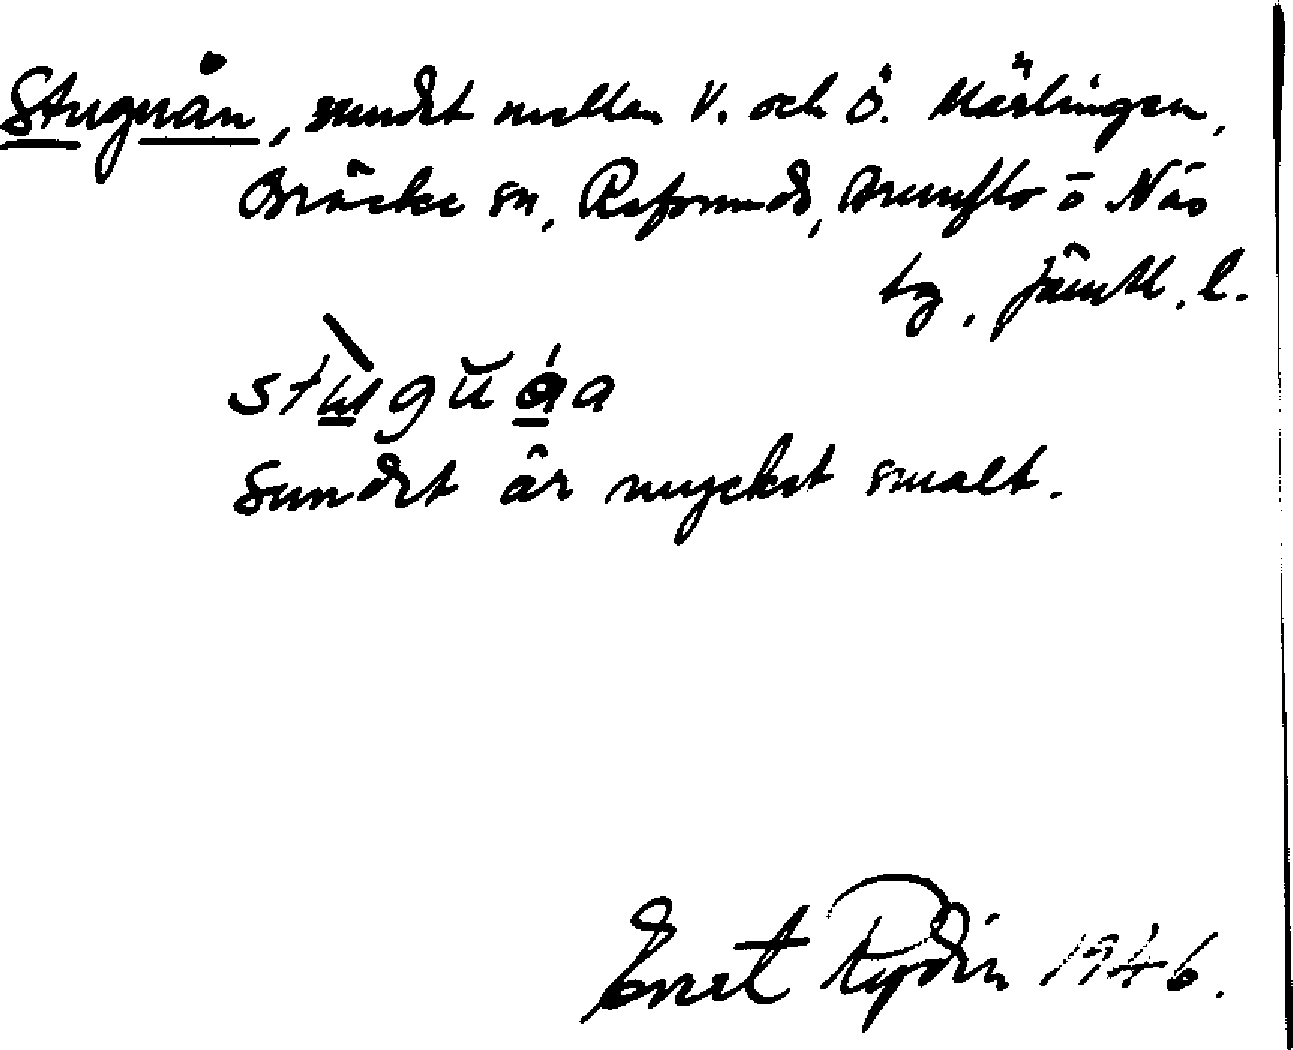 Stuguån, sundet mellan V. och Ö. Mäslingen,
Bräcke sn, Refsunds, Brunflo o Näs
tg. Jämtl. l.
Sundet är mycket smalt.
Ernst Rydin 1946.